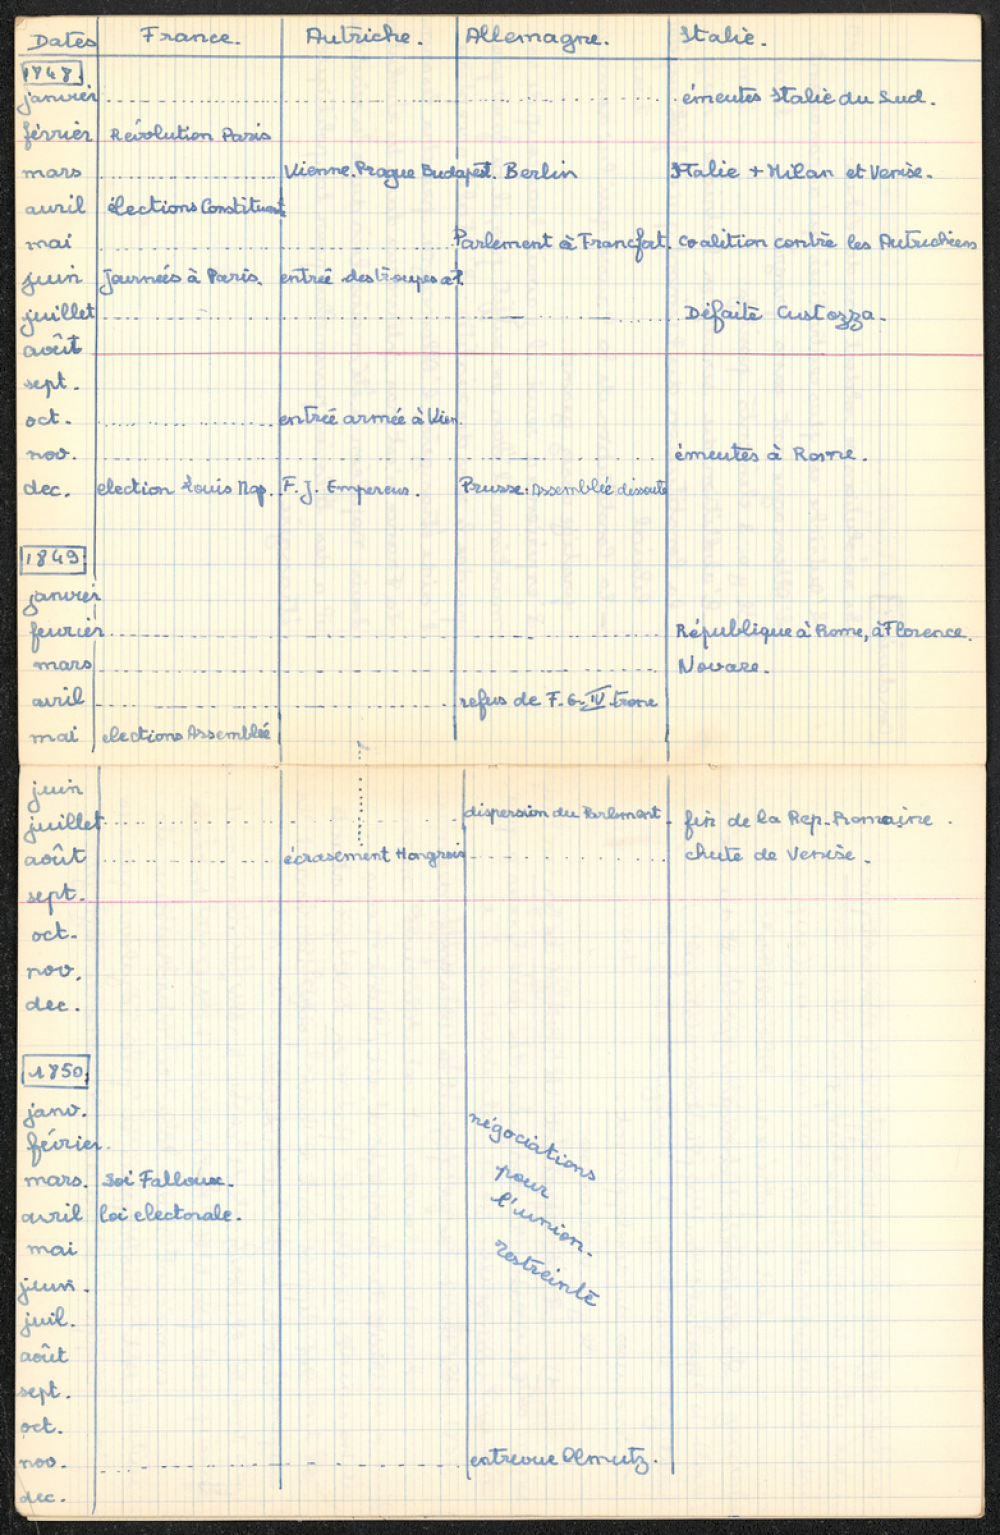 Dates France. Autriche. Allemagne. Italie.
1848
janvier émeutes Italie du Sud.
février Révolution Paris
mars Vienne. Prague Budapest. Berlin Italie + Milan et Venise.
avril élections Constituant
mai Parlement à Francfort. coalition contre les Autrichiens
juin Journées à Paris. entrée des troupes
juillet Défaite Custozza.
août
sept.
oct. entrée armée à Vien.
nov. émeutes à Rome.
dec. election Louis Nap. F. J. Empereur. Prusse: Assemblée dissoute
1849
janvier
fevrier République à Rome, à Florence.
mars Novare.
avril refus de F. G. IV trone
mai elections Assemblée
juin
juillet dispersion du Parlement fin de la Rep. Romaine.
août écrasement Hongrois chute de Venise.
sept.
oct.
nov.
dec.
1850
janv.
février.
négociations
pour
l'union.
restreinte
mars. Loi Falloux.
avril loi electorale.
mai
juin.
juil.
août
sept.
oct.
nov. entrevue Olmutz.
dec.